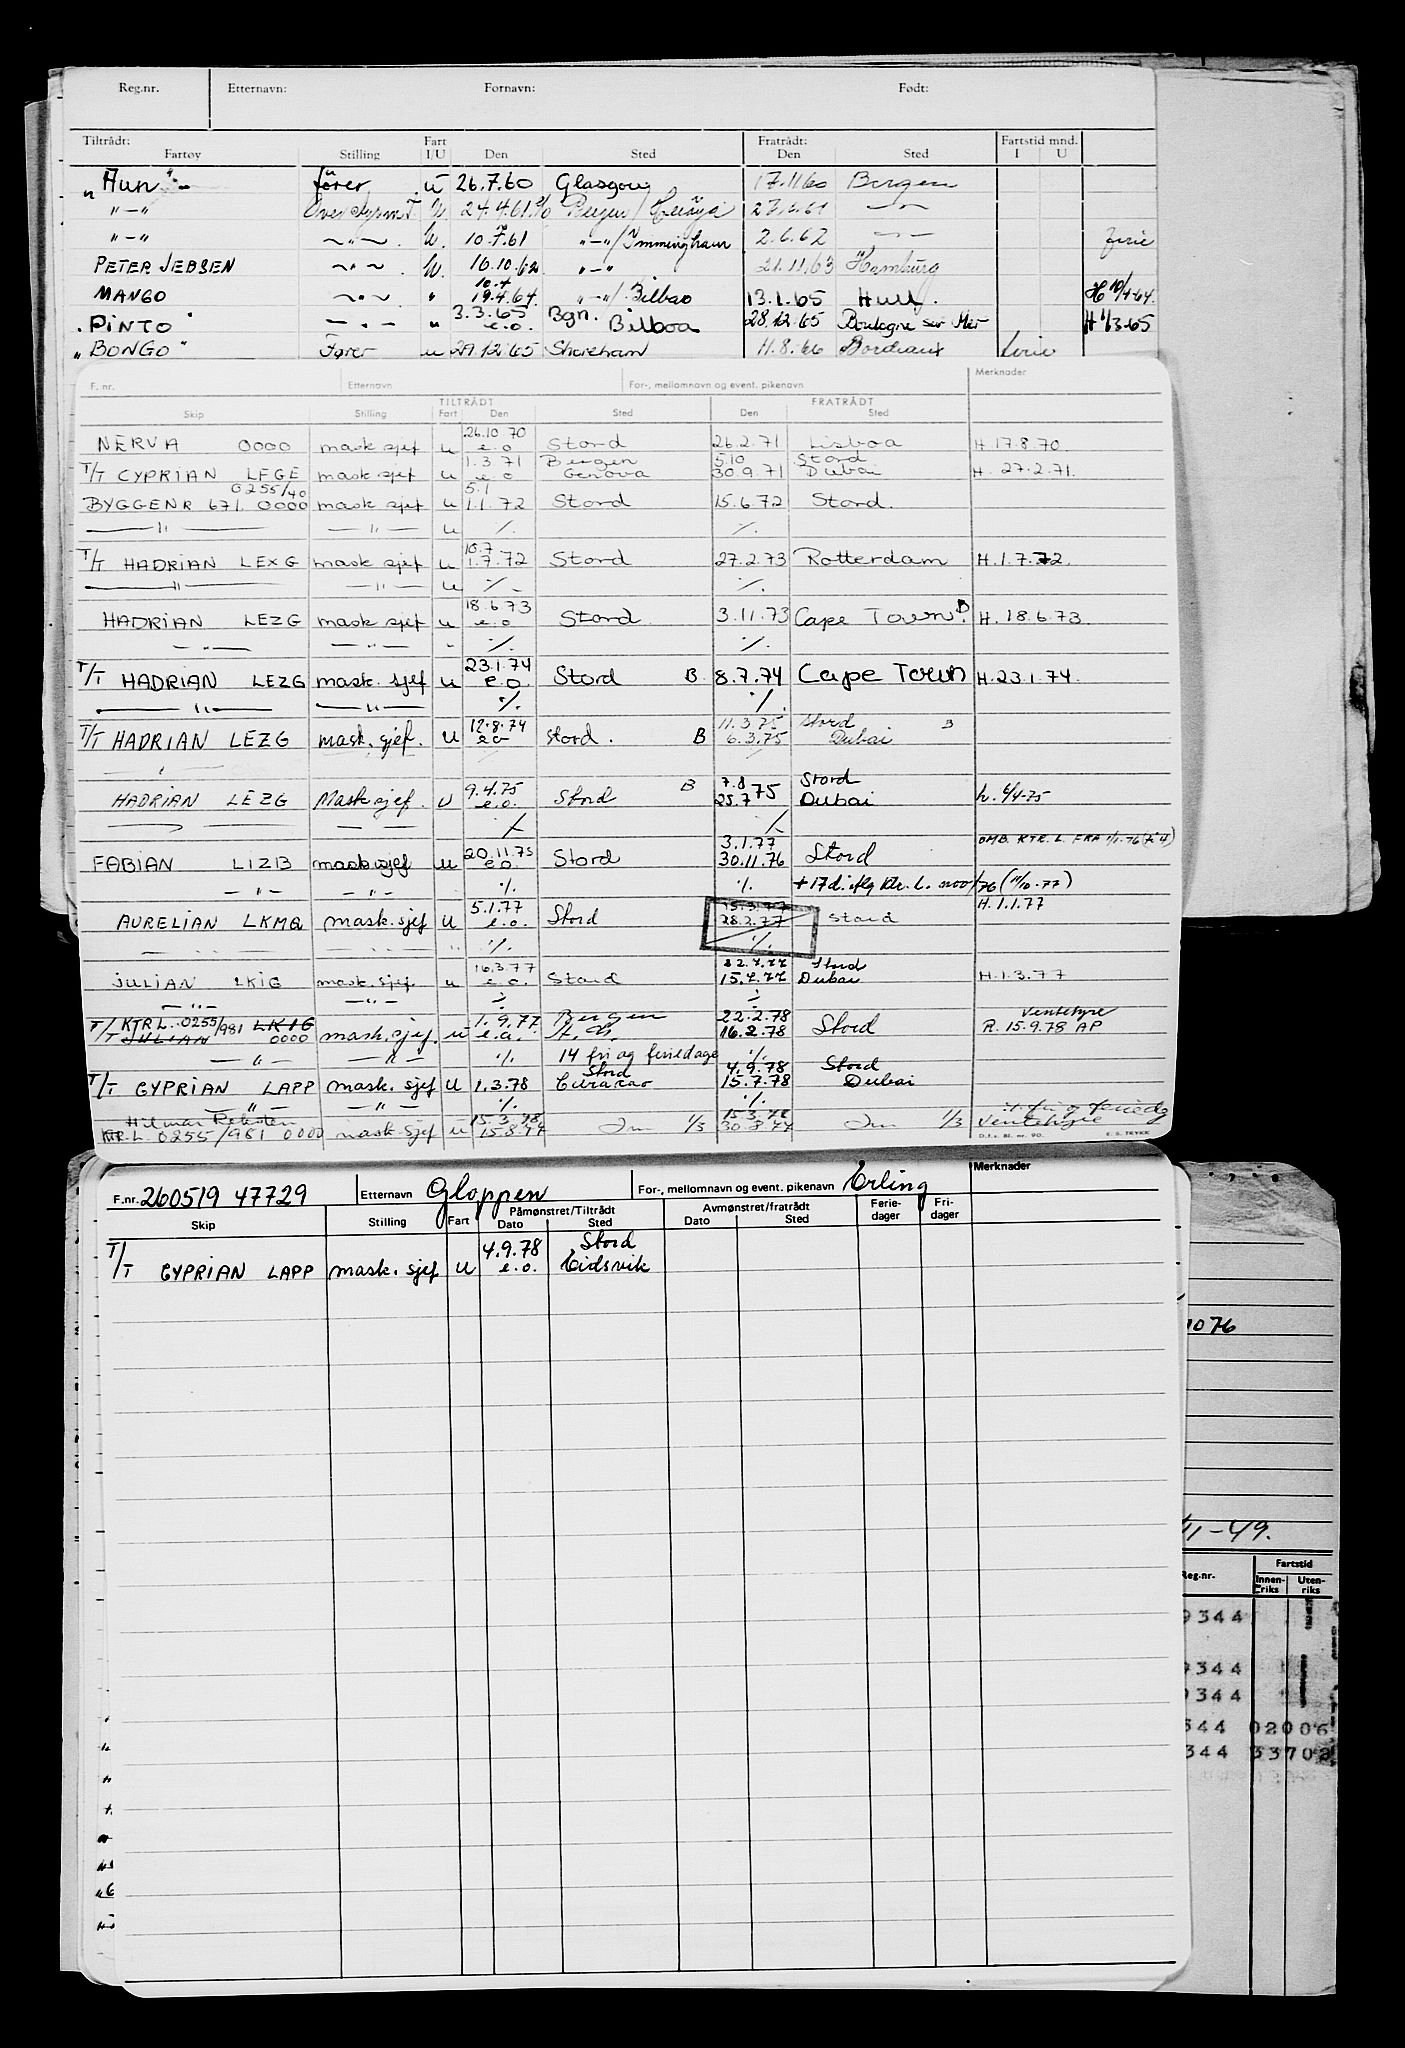 Reg.nr. Etternavn: Fornavn: Født:
Tiltrådt: Fart Fratrådt: Fartstid mnd.
Fartøy Stilling I/U Den Sted Den Sted I U
"Hun" fører u 26.7.60 Glasgow 17.11.60 Bergen
"-" u. 24.4.61 Bergen/
"-" u. 10.7.61 "-"/Immingham 2.6.62 ferie
PETER JEBSEN u. 16.10.62 "-" 21.11.63 Hamburg
MANGO " 10.4 19.4.64. "-"/Bilbao 13.1.65 Hull. H 10/4-64.
"PINTO" " 3.3.65 e.o. Bgn. Bilboa 28.12.65 Boulogne sur Mer H 1/3-65
"BONGO" Fører u 29.12.65 Shoreham 11.8.66 Bordeaux ferie
F. nr. Etternavn For-, mellomnavn og event. pikenavn Merknader
TILTRÅDT FRATRÅDT
Skip Stilling Fart Den Sted Den Sted
NERVA 0000 mask sjef u 26.10.70 e.o Stord 26.2.71 Lisboa H. 17.8.70.
T/T CYPRIAN LEGE mask sjef u 1.3.71 e.o Bergen Genova 5.10 30.9.71 Stord Dubai H. 27.2.71.
BYGGENR 671. 0255/40 0000 mask sjef u 5.1 1.1.72 Stord 15.6.72 Stord.
—"— —"— u ./. ./.
T/T HADRIAN LEXG mask sjef u 10.7 1.7.72 Stord 27.2.73 Rotterdam H. 1.7.72.
—"— —"— u ./. ./.
HADRIAN LEZG mask sjef u 18.6.73 e.o Stord 3.11.73 Cape Town. D H. 18.6.73
—"— —"— " ./. ./.
T/T HADRIAN LEZG mask. sjef u 23.1.74 e.o. Stord B 8.7.74 Cape Town H.23.1.74.
—"— —"— ./. ./.
T/T HADRIAN LEZG mask. sjef. u 12.8.74 e.o Stord. B 11.3.75 6.3.75 Stord Dubai B
HADRIAN LEZG Mask sjef. u 9.4.75 e.o. Stord B 7.8 25.7 75 Stord Dubai h. 4/4-75
— — ./. ./.
FABIAN LIZB mask sjef u 20.11.75 e.o. Stord 3.1.77 30.11.76 Stord OMB. KTR. L. FRA 1/1-76
—"— —"— ./. ./. +17 d. iflg ktr. L. nov/76 (11/10-77)
AURELIAN LKMQ mask. sjef u 5.1.77 e.o. Stord 15.3.77 28.2.77 Stord H.1.1.77
./. ./.
JULIAN LKIG mask. sjef u 16.3.77 e.o. Stord 15.7.77 Stord Dubai H.1.3.77
—"— —"— ./. ./.
T/T KTR L. 0255/981 JULIAN LKIG 0000 mask. sjef. u 1.9.77 e.o. Bergen 22.2.78 16.2.78 Stord Ventehyre R. 15.9.78 AP
—"— —"— ./. 14 fri og feriedage ./.
T/T CYPRIAN LAPP mask. sjef u 1.3.78 Stord Curacao 4.9.78 15.7.78 Stord Dubai
—"— —"— ./. ./.
Hilmar Reksten KTR. L. 0255/981 0000 mask. sjef u 15.3.78 15.8.77 1/3 15.3.78 30.8.77 1/3 fri og feriedg Ventehyre
D.f.s. Bl. nr. 90. E. S. TRYKK
F.nr. 260519 47729 Etternavn Gloppen For-, mellomnavn og event. pikenavn Erling Merknader
Påmønstret/Tiltrådt Avmønstret/fratrådt Ferie-dager Fri-dager
Skip Stilling Fart Dato Sted Dato Sted
T/T CYPRIAN LAPP mask. sjef u 4.9.78 e.o. Stord Eidsvik
1076
/11-49.
Reg.nr. Fartstid
Innen-riks Uten-riks
9344
9344
9344
344 02006
344 33702